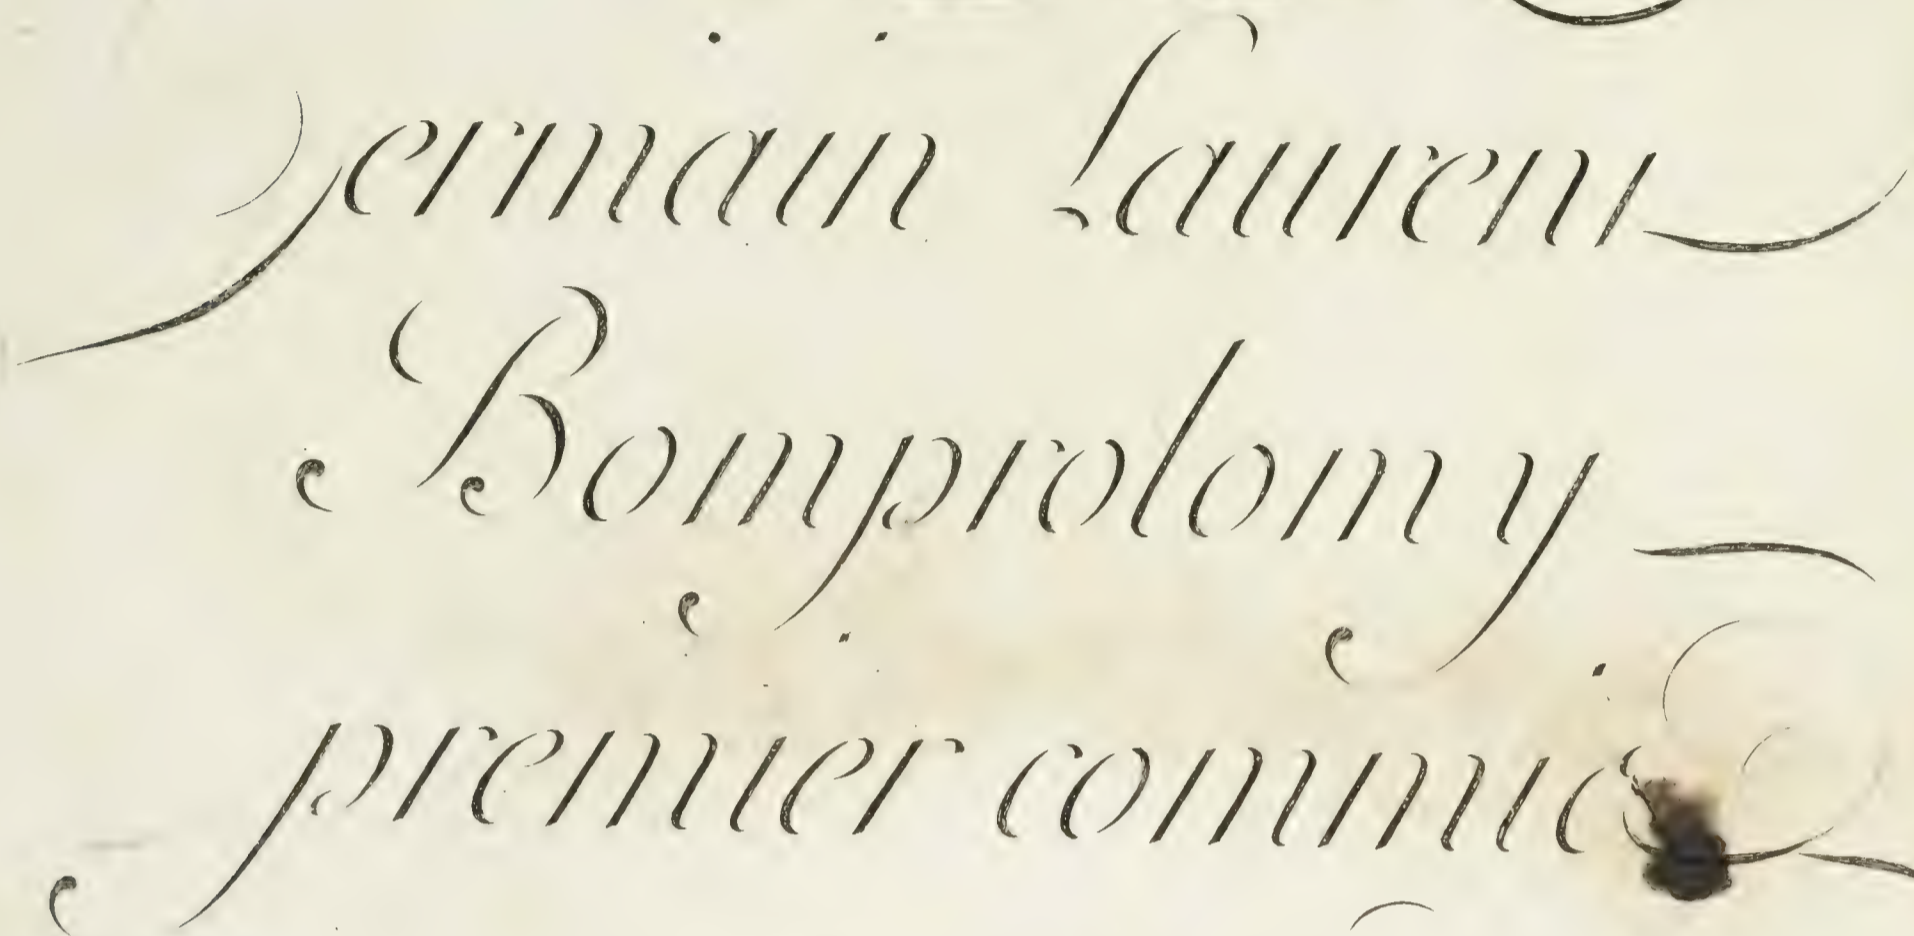 Germain Laurent
Bomprolomy
premier commis